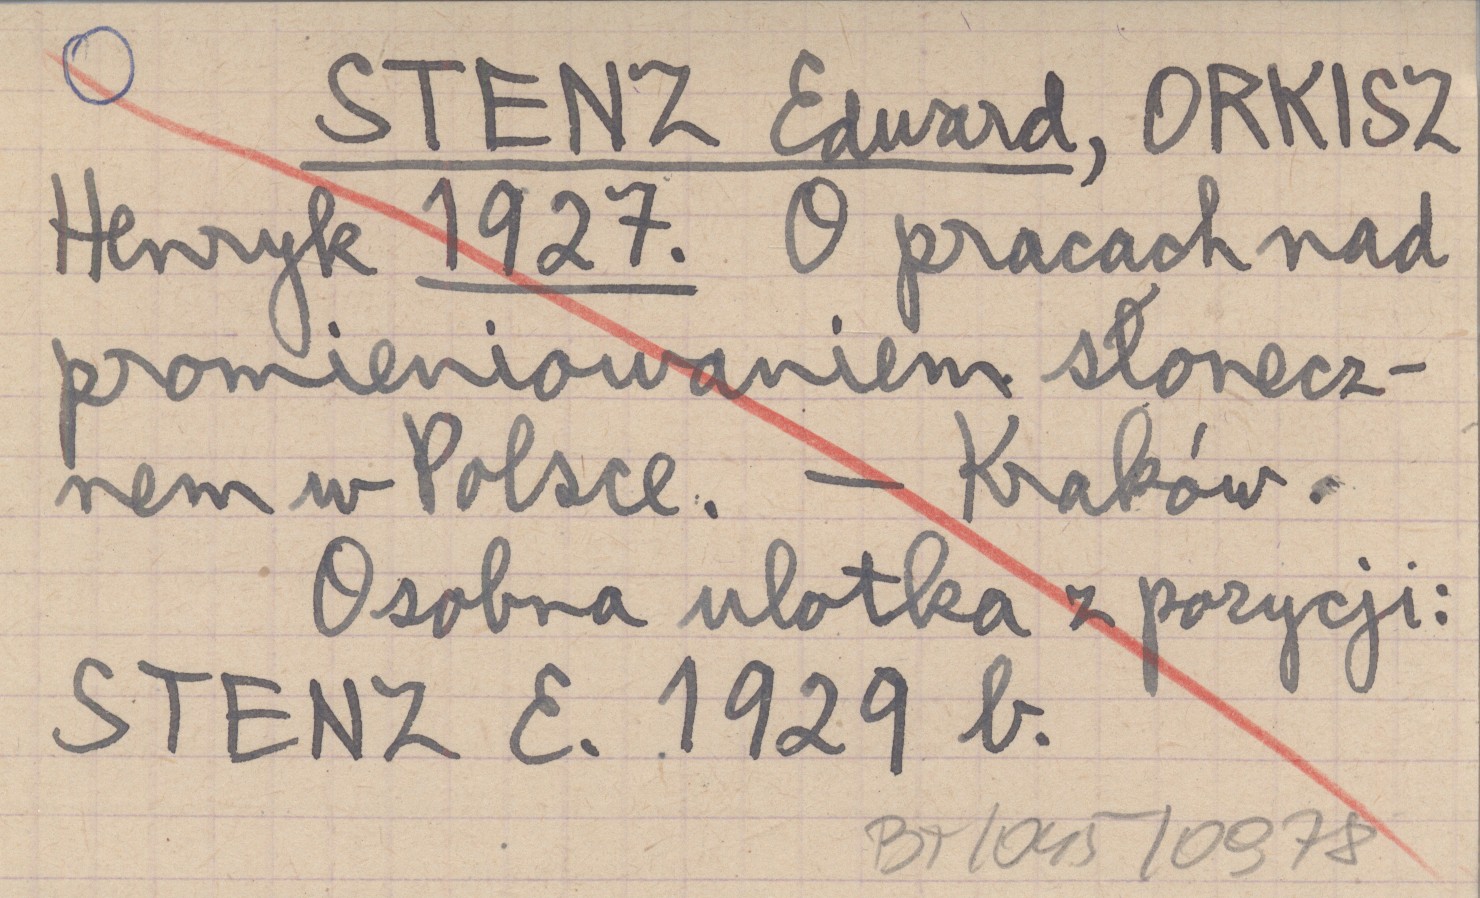 STENZ Edward, ORKISZ
Henryk 1927. O pracach nad
promieniowaniem słonecz-
nem w Polsce. — Kraków.
Osobna ulotka z pozycji:
STENZ E. 1929 b.
BT/045/0978